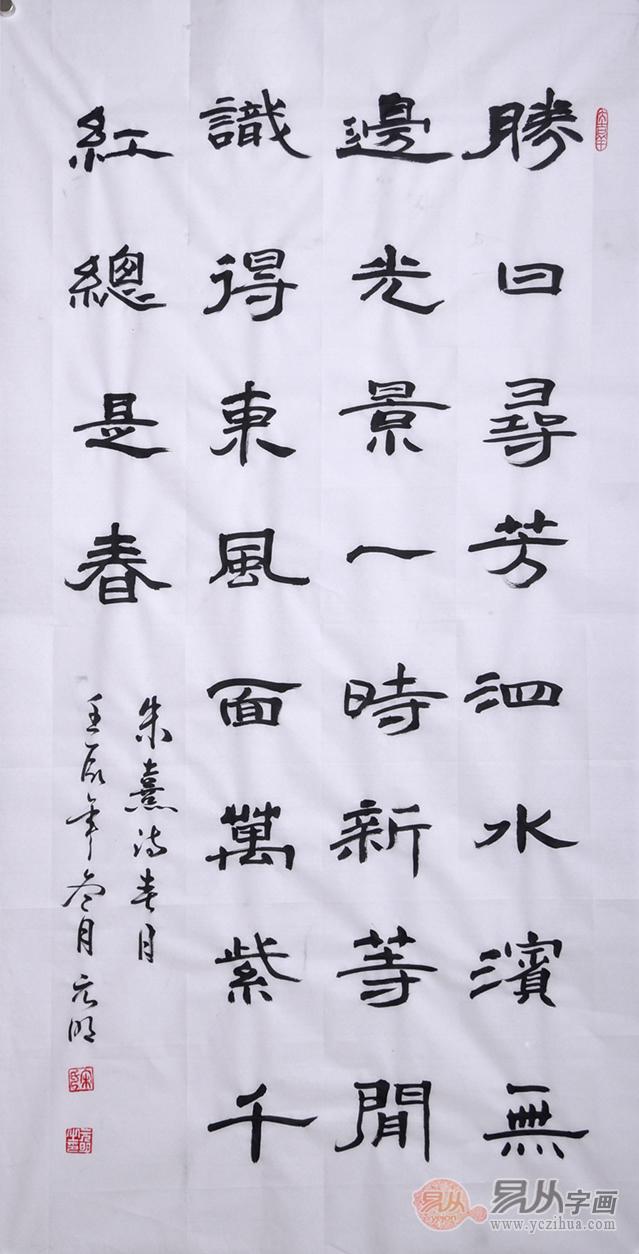 勝日尋芳泗水濱無
邊光景一時新等閒
識得東風面萬紫千
紅總是春
朱熹詩春日
壬辰年冬月元明
易从字画
www.yczihua.com